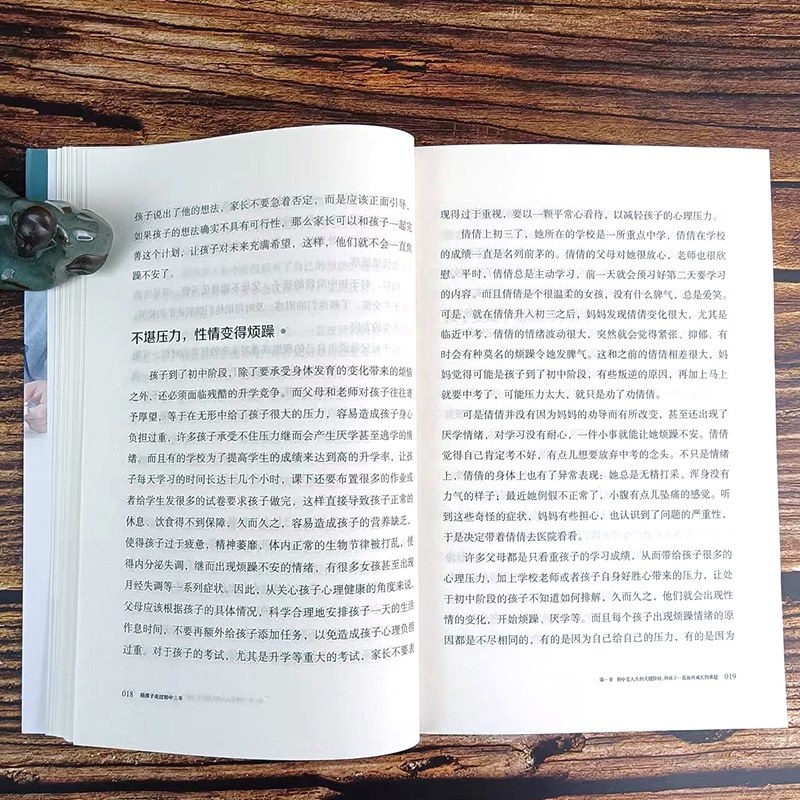 孩子说出了他的想法，家长不要急着否定，而是应该正面引导，
如果孩子的想法确实不具有可行性，那么家长可以和孩子一起完
善这个计划，让孩子对未来充满希望，这样，他们就不会一直焦
躁不安了。
不堪压力，性情变得烦躁
孩子到了初中阶段，除了要承受身体发育的变化带来的烦恼
之外，还必须面临残酷的升学竞争。而父母和老师对孩子往往寄
予厚望，等于在无形中给了孩子很大的压力，容易造成孩子身心
负担过重，许多孩子承受不住压力继而会产生厌学甚至逃学的情
绪。而且有的学校为了提高学生的成绩来达到高的升学率，让孩
子每天学习的时间长达十几个小时，课下还要布置很多的作业或
者给学生发很多的试卷要求孩子做完，这样直接导致孩子正常的
休息、饮食得不到保障，久而久之，容易造成孩子的营养缺乏，
使得孩子过于疲惫，精神萎靡，体内正常的生物节律被打乱，使
得内分泌失调，继而出现烦躁不安的情绪，有很多女孩甚至出现
月经失调等一系列症状。因此，从关心孩子心理健康的角度来说，
父母应该根据孩子的具体情况，科学合理地安排孩子一天的生活
作息时间，不要再额外给孩子添加任务，以免造成孩子心理负担
过重。对于孩子的考试，尤其是升学等重大的考试，家长不要表
018 陪孩子走过初中三年
现得过于重视，要以一颗平常心看待，以减轻孩子的心理压力。
倩倩上初三了，她所在的学校是一所重点中学，倩倩在学校
的成绩一直是名列前茅的。倩倩的父母对她很放心，老师也很欣
慰。平时，倩倩总是主动学习，前一天就会预习好第二天要学习
的内容。而且倩倩是个很温柔的女孩，没有什么脾气，总是爱笑。
可是，就在倩倩升入初三之后，妈妈发现倩倩变化很大，尤其是
临近中考，倩倩的情绪波动很大，突然就会觉得紧张、抑郁，有
时会有种莫名的烦躁令她发脾气。这和之前的倩倩相差很大，妈
妈觉得可能是孩子到了初中阶段，有些叛逆的原因，再加上马上
就要中考了，可能压力太大，就只是劝了劝倩倩。
可是倩倩并没有因为妈妈的劝导而有所改变，甚至还出现了
厌学情绪，对学习没有耐心，一件小事就能让她烦躁不安。倩倩
觉得自己肯定考不好，有点儿想要放弃中考的念头。不只是情绪
上，倩倩的身体上也有了异常表现：她总是无精打采、浑身没有
力气的样子；最近她例假不正常了，小腹有点儿坠痛的感觉。听
到这些奇怪的症状，妈妈有些担心，也认识到了问题的严重性，
于是决定带着倩倩去医院看看。
许多父母都是只看重孩子的学习成绩，从而带给孩子很多的
心理压力，加上学校老师或者孩子自身好胜心带来的压力，让处
于初中阶段的孩子不知道如何排解，久而久之，他们就会出现性
情的变化，开始烦躁、厌学等。而且每个孩子出现烦躁情绪的原
因都是不尽相同的，有的是因为自己给自己的压力，有的是因为
第一章 初中是人生的关键阶段，和孩子一起面对成长的难题 019